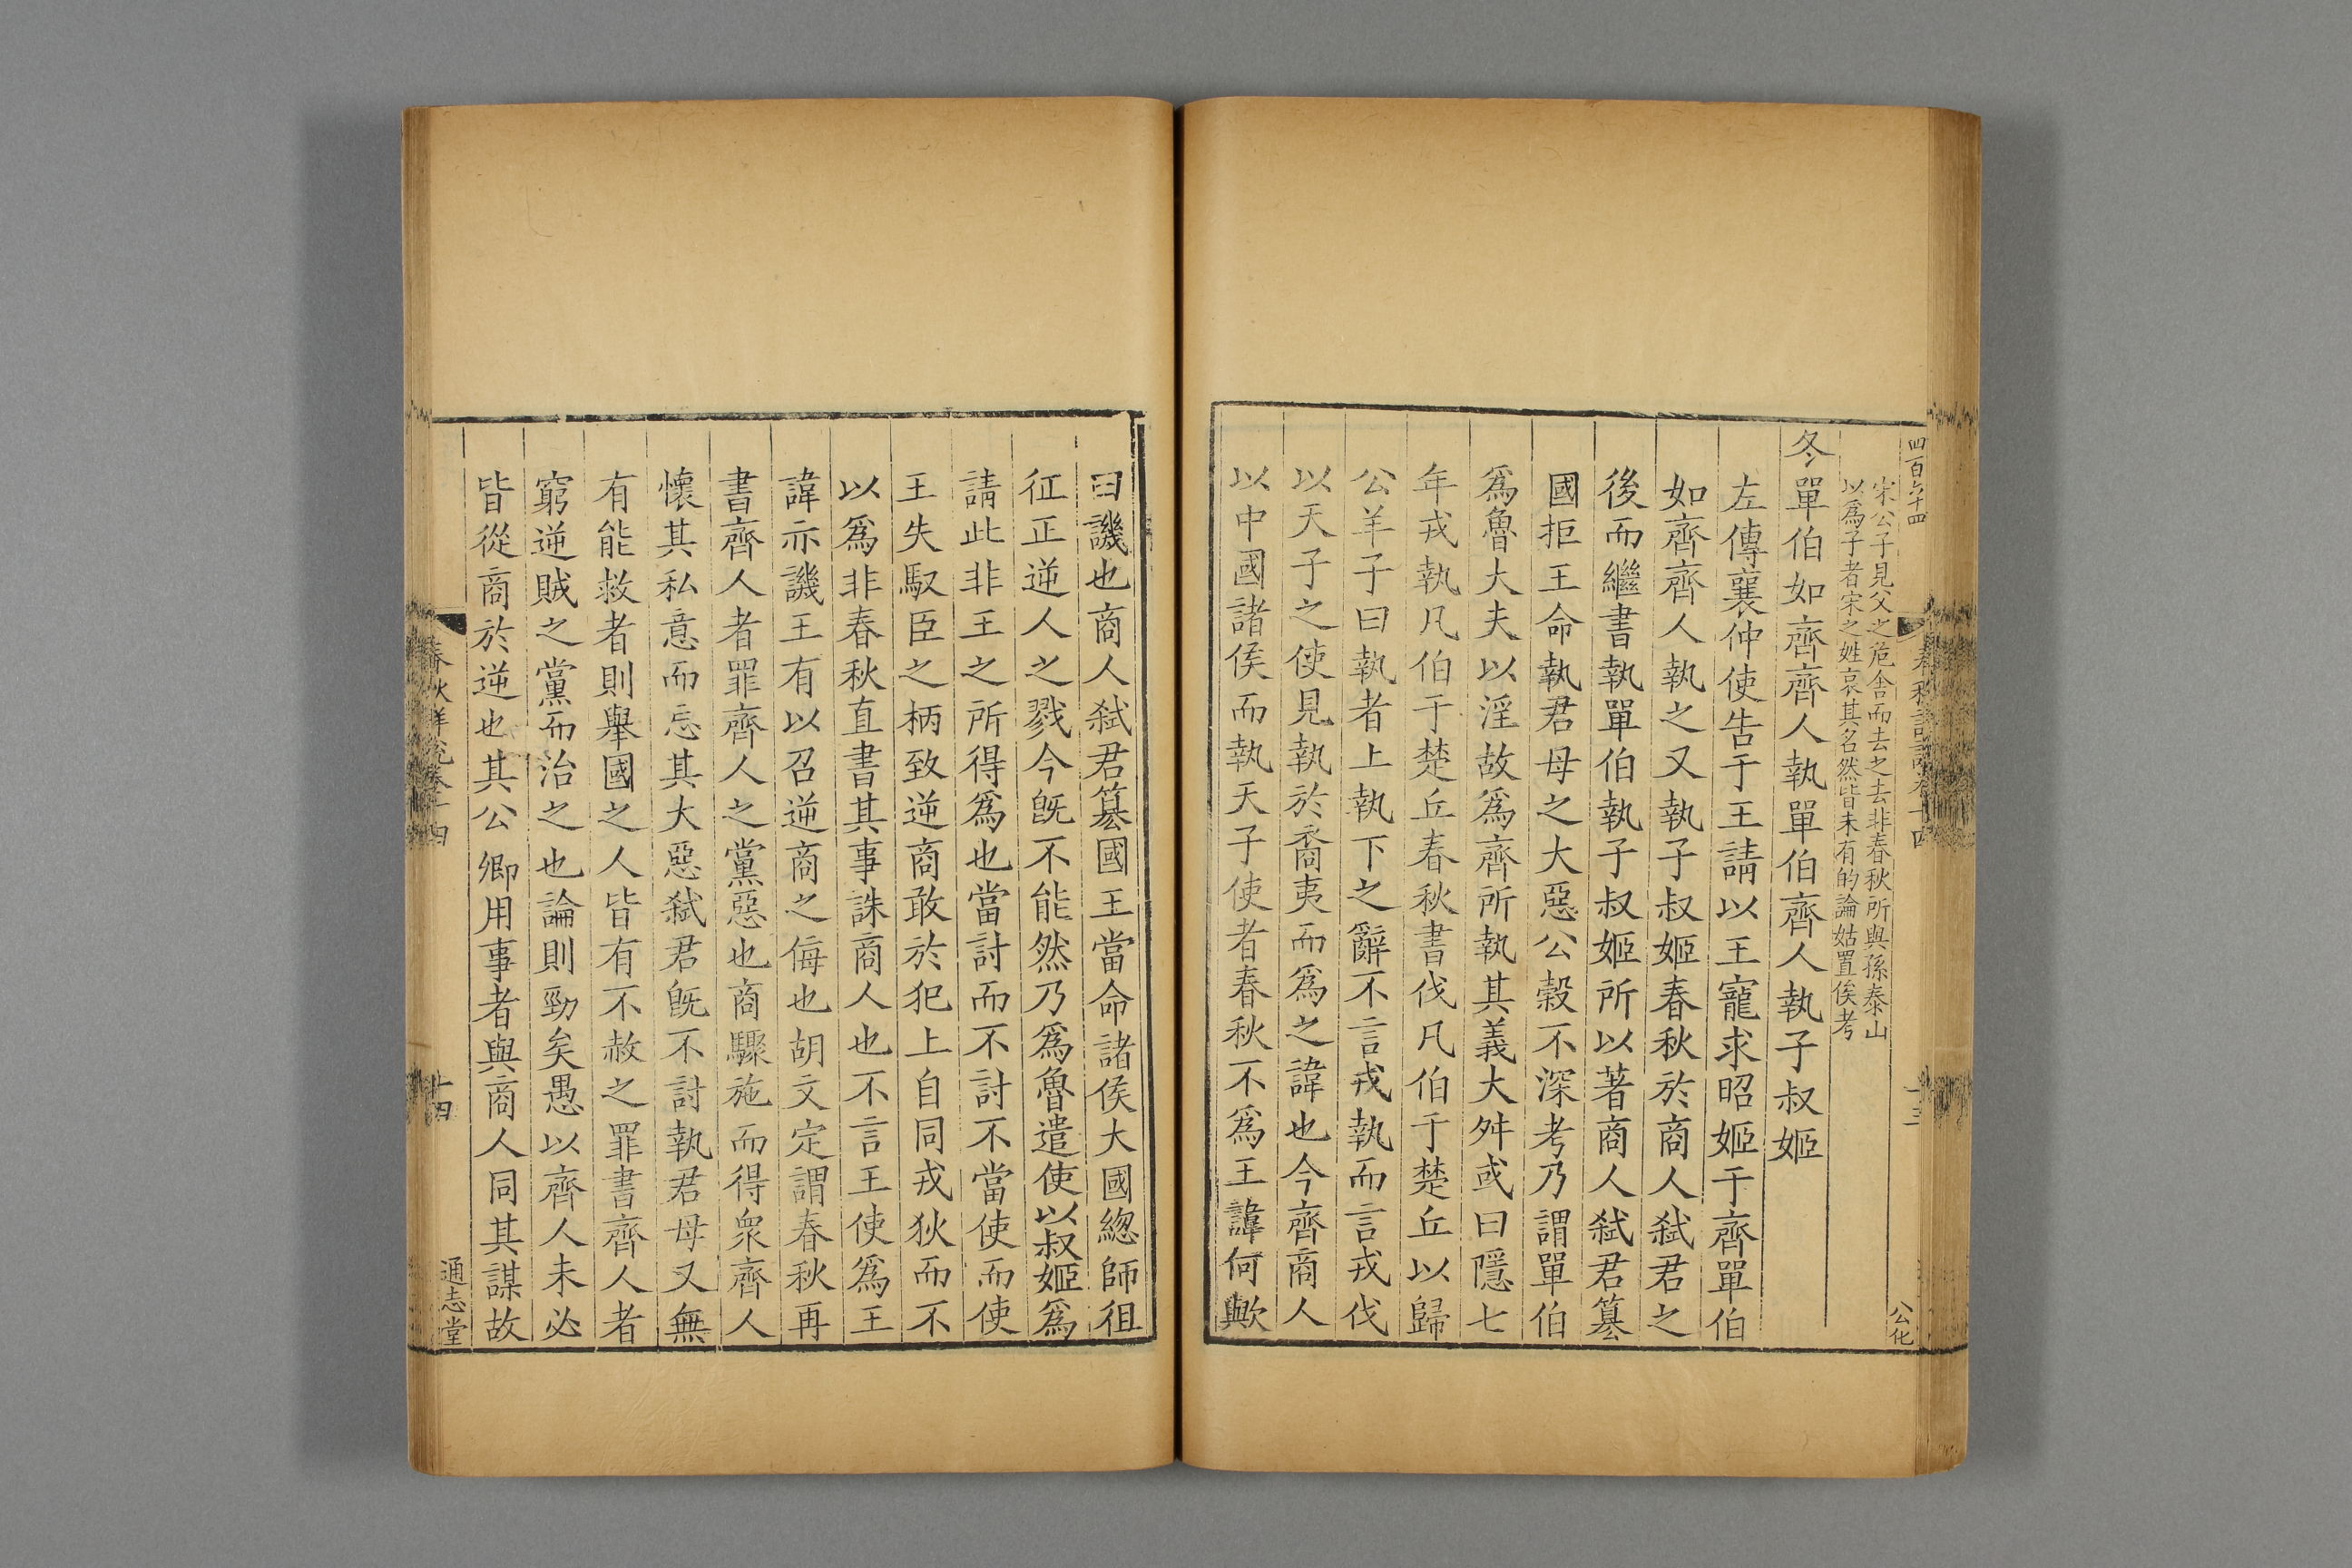 四百六十四
宋公子見父之危舍而去之去非春秋所與孫泰山
以爲子者宋之姓哀其名然皆未有的論姑置俟考
冬單伯如齊齊人執單伯齊人執子叔姬
左傳襄仲使告于王請以王寵求昭姬于齊單伯
如齊齊人執之又執子叔姬春秋於商人弑君之
後而繼書執單伯執子叔姬所以著商人弑君簒
國拒王命執君母之大惡公榖不深考乃謂單伯
爲魯大夫以淫故爲齊所執其義大舛或曰隱七
年戎執凡伯于楚丘春秋書伐凡伯于楚丘以歸
公羊子曰執者上執下之辭不言戎執而言戎伐
以天子之使見執於裔夷而爲之諱也今齊商人
以中國諸侯而執天子使者春秋不爲王諱何歟
公化
曰譏也商人弑君簒國王當命諸侯大國緫師徂
征正逆人之戮今旣不能然乃爲魯遣使以叔姬爲
請此非王之所得爲也當討而不討不當使而使
王失馭臣之柄致逆商敢於犯上自同戎狄而不
以爲非春秋直書其事誅商人也不言王使爲王
諱示譏王有以召逆商之侮也胡文定謂春秋再
書齊人者罪齊人之黨惡也商驟施而得衆齊人
懷其私意而忘其大惡弑君旣不討執君母又無
有能救者則舉國之人皆有不赦之罪書齊人者
窮逆賊之黨而治之也論則勁矣愚以齊人未必
皆從商於逆也其公卿用事者與商人同其謀故
春秋詳說卷十四
十四
通志堂